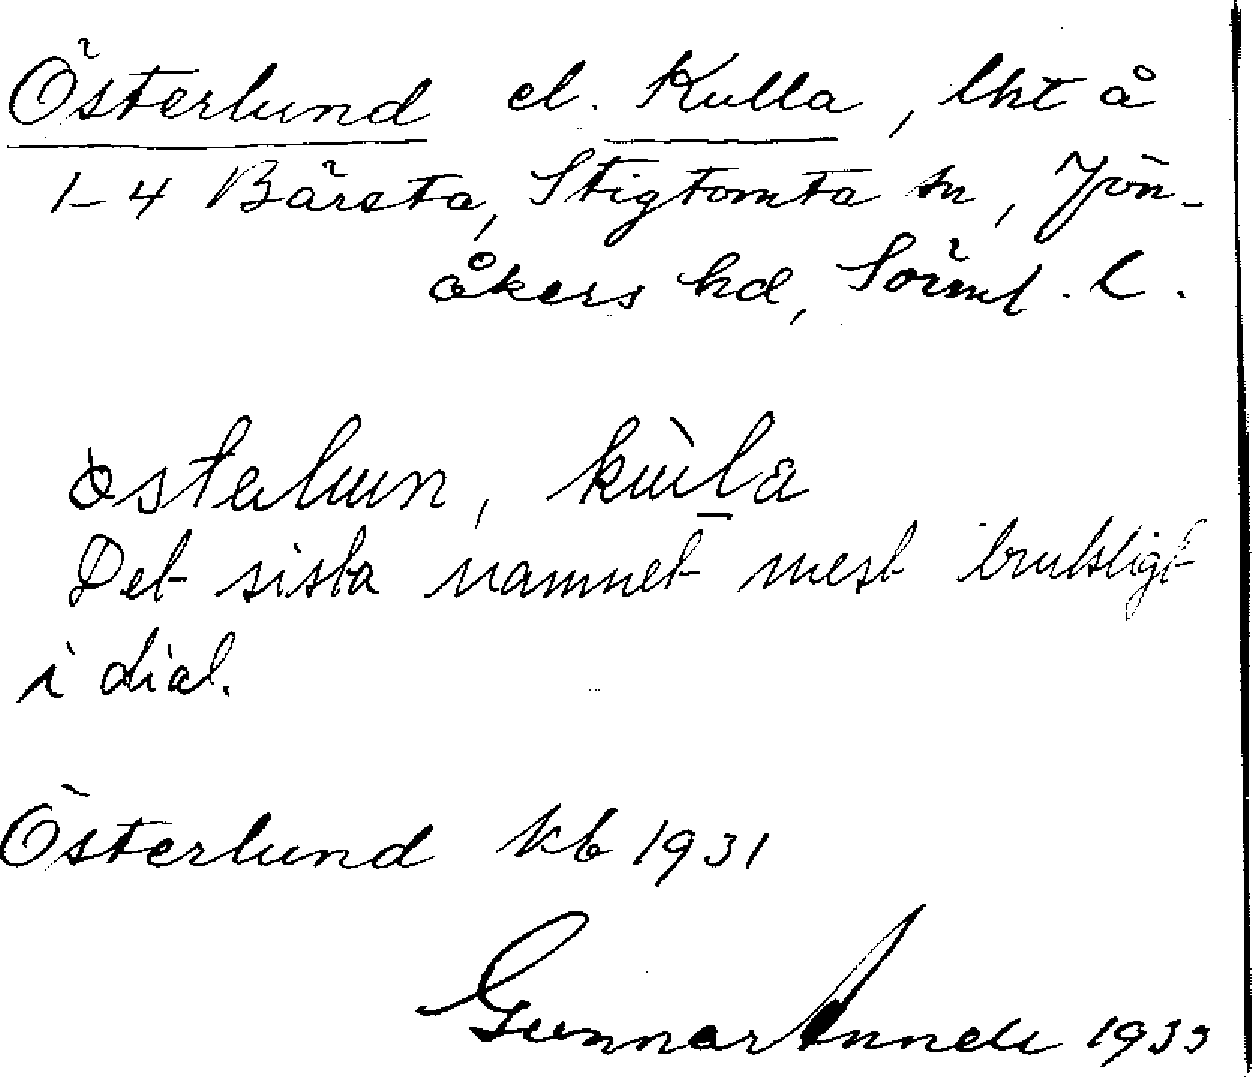 Österlund el. Kulla, lht å
1-4 Bärsta, Stigtomta sn, Jön-
åkers hd, Sörml. l.
Det sista namnet mest brukligt
i dial.
Österlund kb 1931
Gunnar 1933